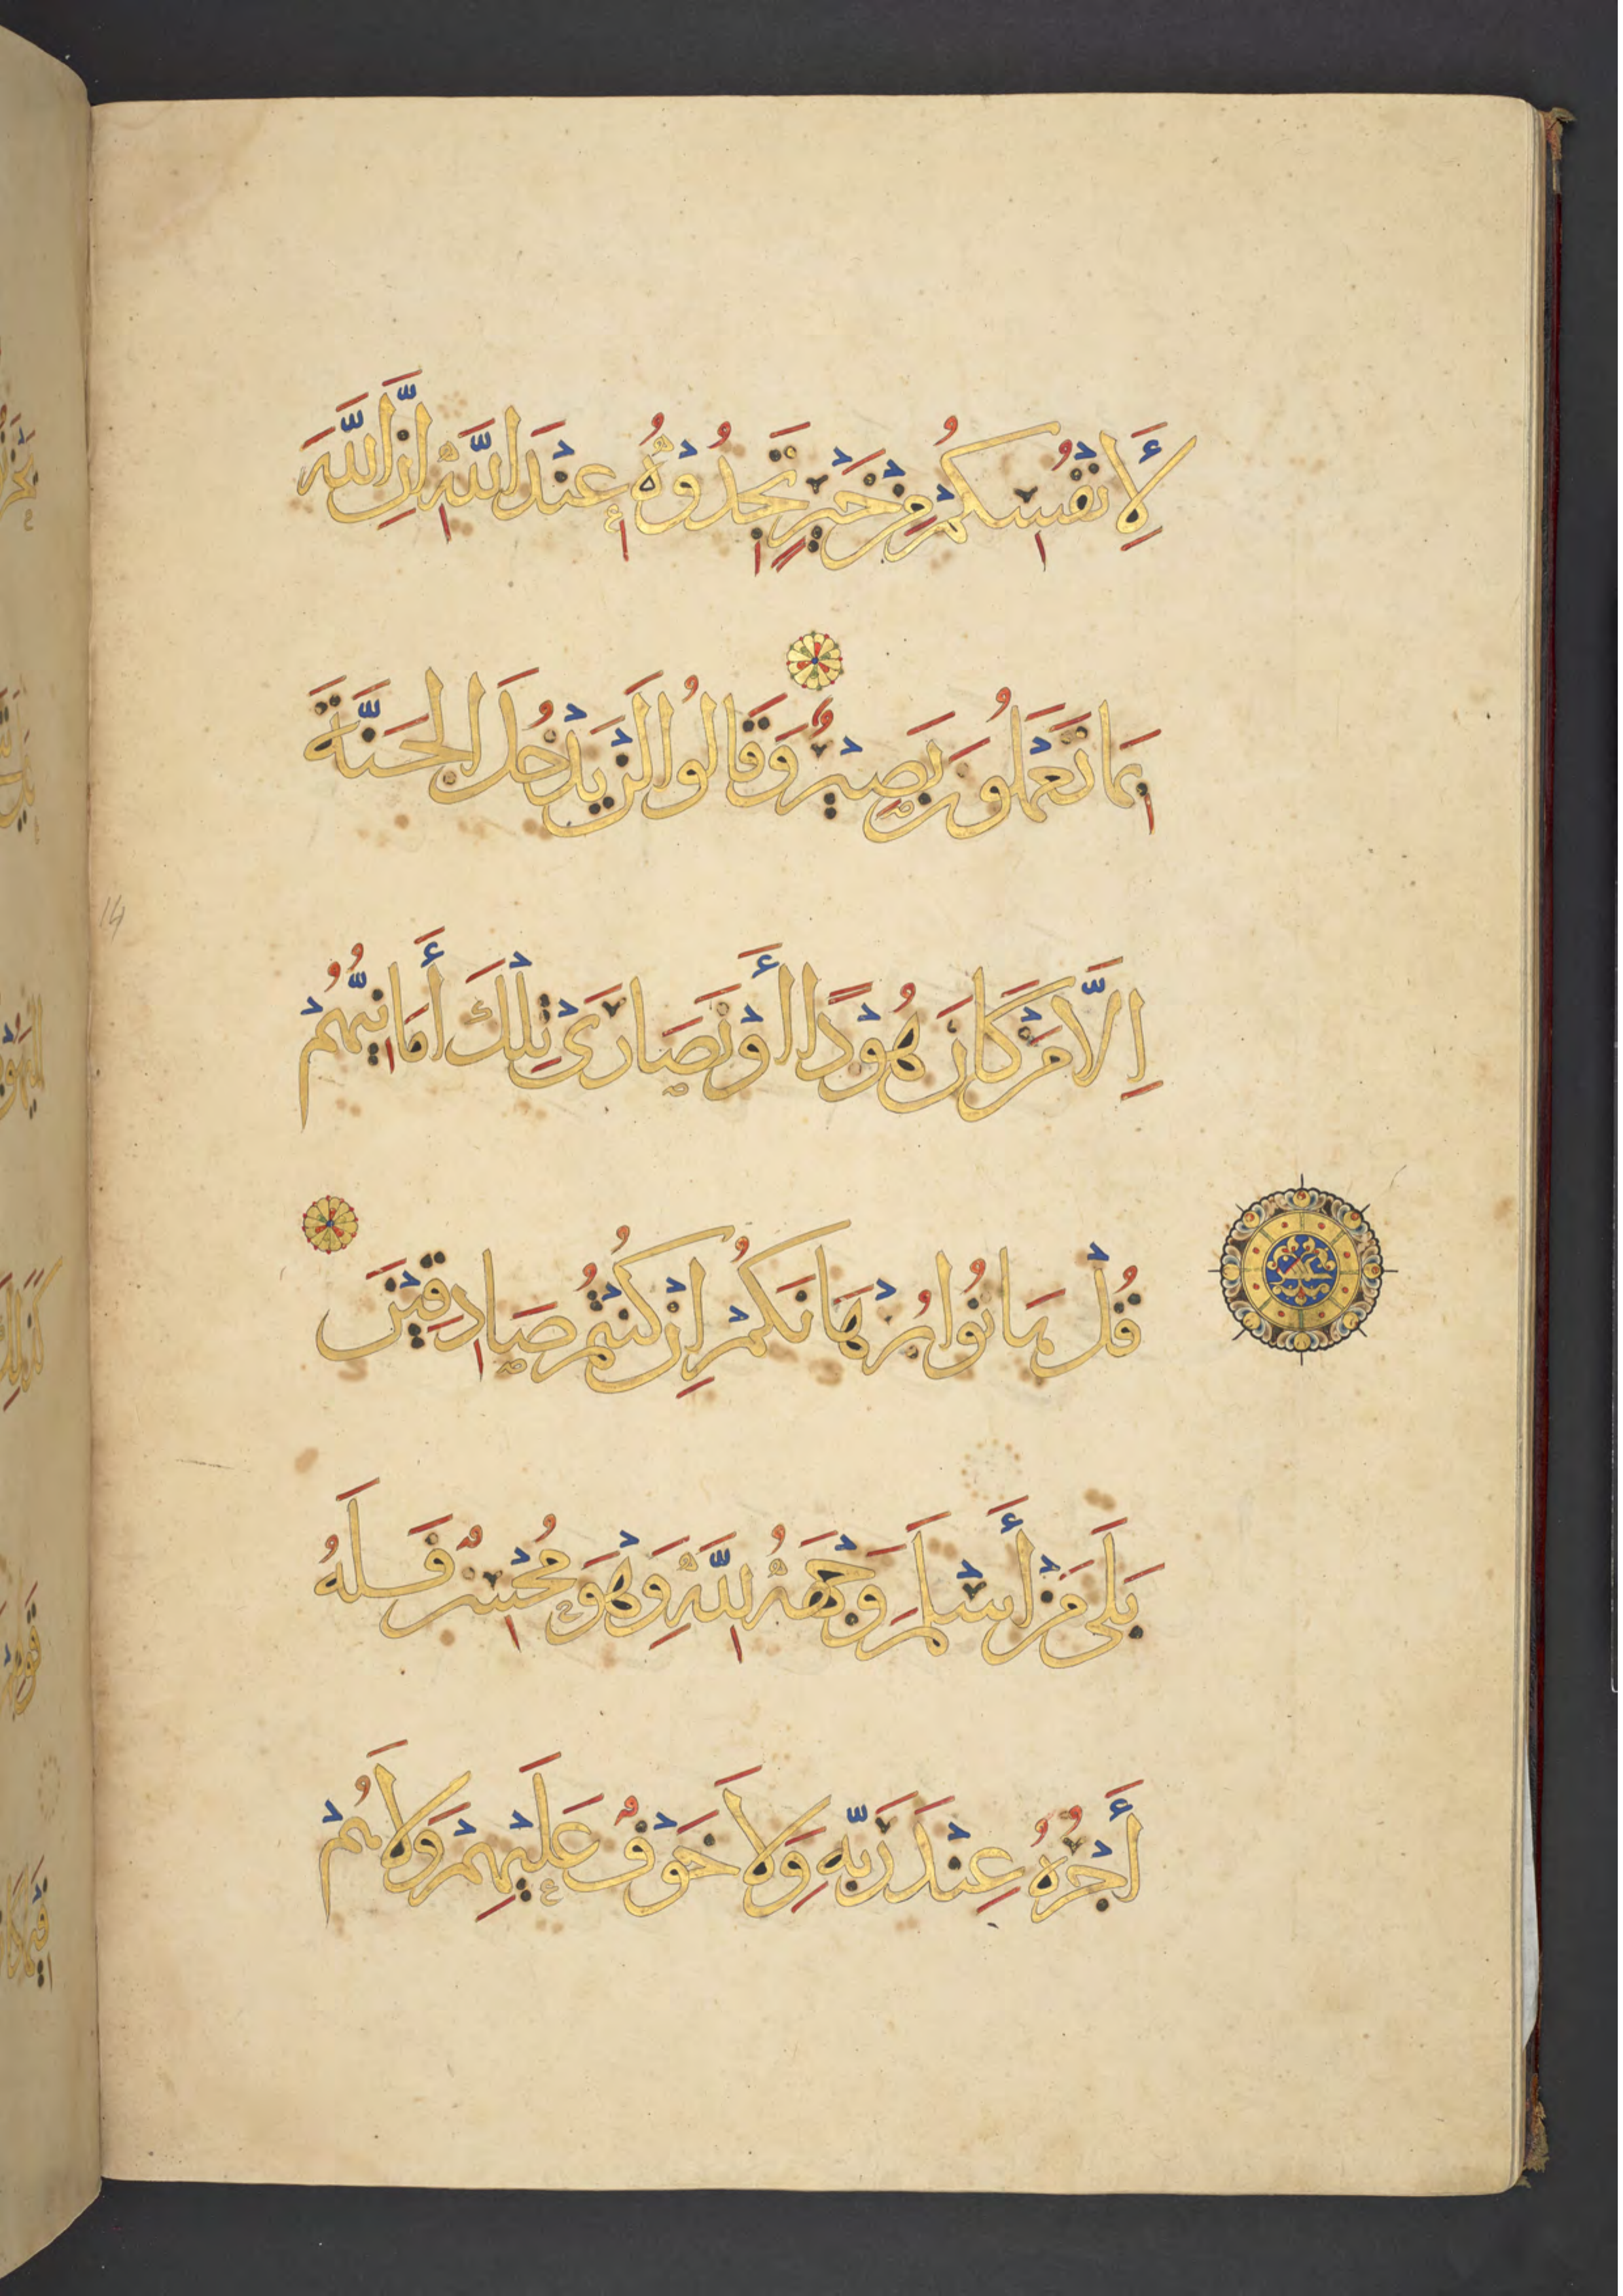 لِأَنْفُسِكُمْ مِنْ خَيْرٍ تَجِدُوْهُ عِنْدَ اللَّهِ إِنَّ اللَّهَ
بِمَا تَعْمَلُونَ بَصِيْرٌ وَقَالُوا لَنْ يَدْخُلَ الْجَنَّةَ
اِلَّا مَنْ كَانَ هُوْدًا أَوْ نَصَارَىْ تِلْكَ أَمَانِيُّهُمْ
قُلْ هَاتُوا بُرْهَانَكُمْ اِنْ كُنْتُمْ صَادِقِيْنَ
بَلَى مَنْ أَسْلَمَ وَجْهَهُ لِلَّهِ وَهْوَ مُحْسِنٌ فَلَهُ
أَجْرُهُ عِنْدَ رَبِّهِ وَلَا خَوْفٌ عَلَيْهِمْ وَلَا هُمْ
14